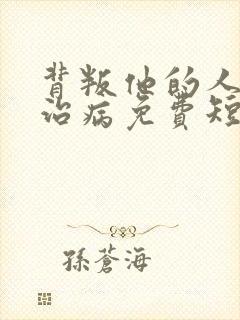 背叛他的人
治病免费短
孫蒼海